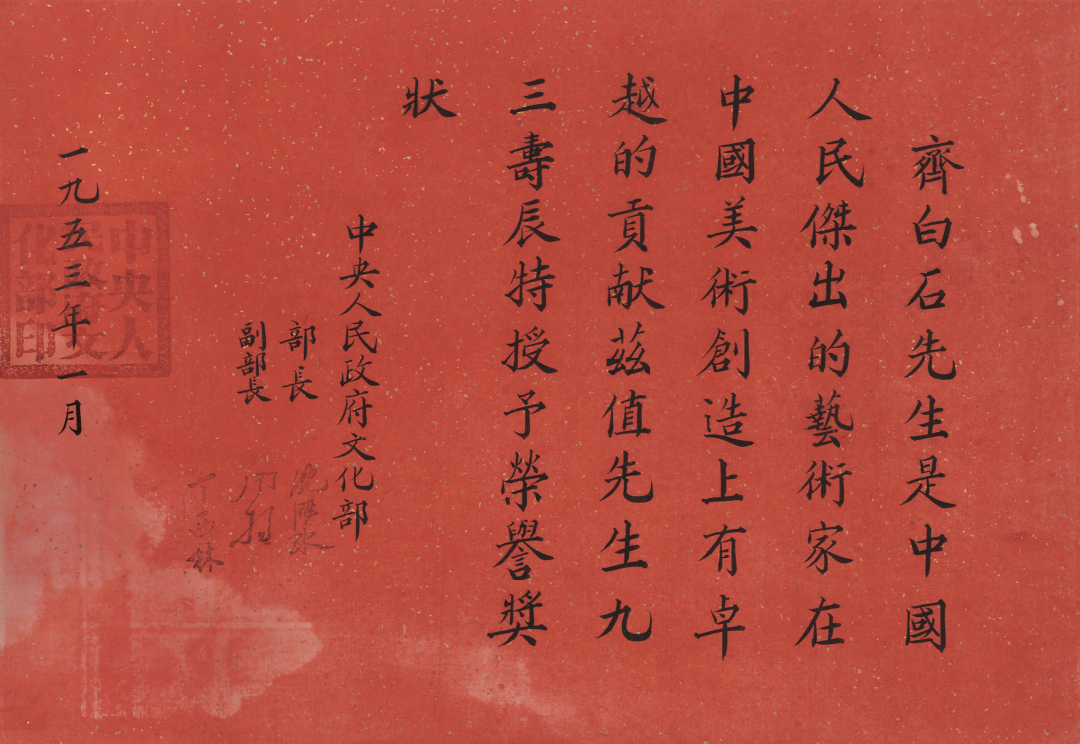 齊白石先生是中國
人民傑出的藝術家在
中國美術創造上有卓
越的貢献茲值先生九
三壽辰特授予榮譽奬
狀
中央人民政府文化部
部長
沈雁冰
副部長
周揚
丁西林
一九五三年一月
中央人
民政府文
化部印